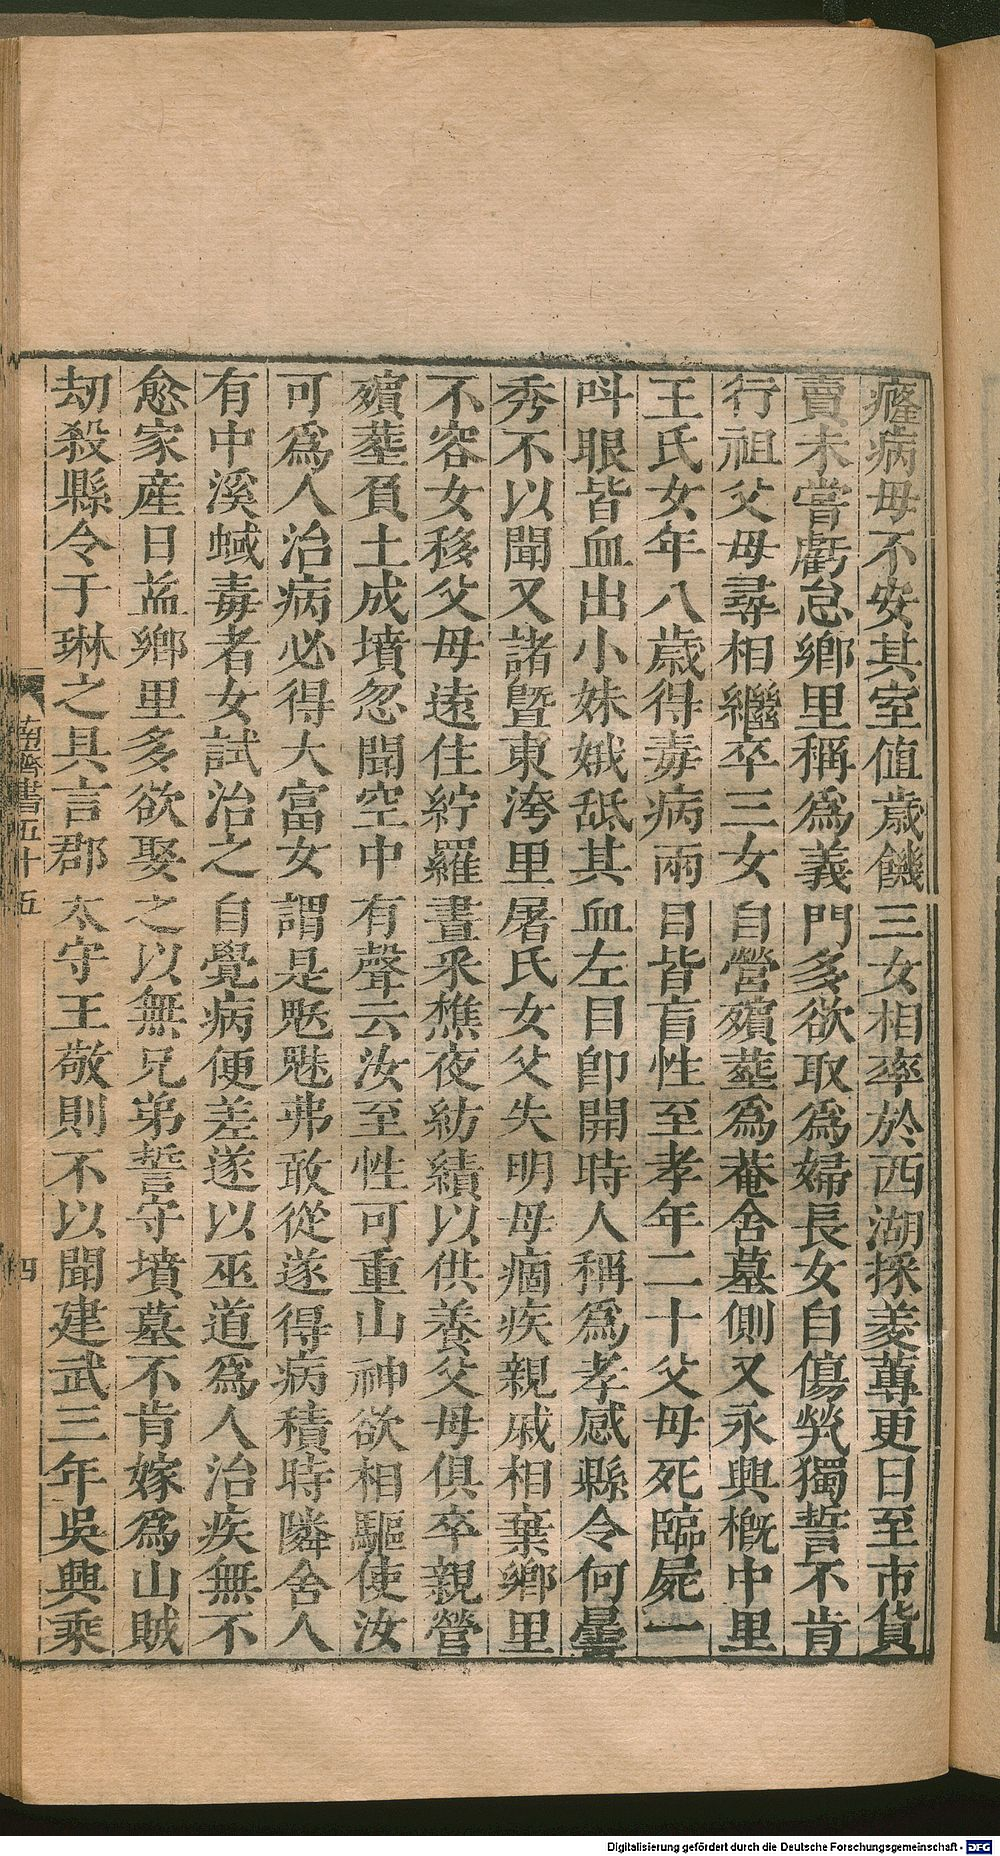 癃病母不安其室値歲饑三女相率於西湖採菱蓴更日至市貨
賣未嘗虧怠鄉里稱爲義門多欲取爲婦長女自傷煢獨誓不肯
行祖父母尋相繼卒三女自營殯葬爲菴舍墓側又永興槪中里
王氏女年八歲得毒病兩目皆盲性至孝年二十父母死臨屍一
呌眼皆血出小妹娥舐其血左目卽開時人稱爲孝感縣令何曇
秀不以聞又諸曁東洿里屠氏女父失明母痼疾親戚相棄鄉里
不容女移父母遠住紵羅晝釆樵夜紡績以供養父母俱卒親營
殯葬負土成墳忽聞空中有聲云汝至性可重山神欲相驅使汝
可爲人治病必得大富女謂是魅弗敢從遂得病積時隣舍人
有中溪蜮毒者女試治之自覺病便差遂以巫道爲人治疾無不
愈家産日益鄉里多欲娶之以無兄弟誓守墳墓不肯嫁爲山賊
刼殺縣令于琳之具言郡太守王敬則不以聞建武三年吳興乘
南齊書五十五
四
Digitalisierung gefördert durch die Deutsche Forschungsgemeinschaft - DFG